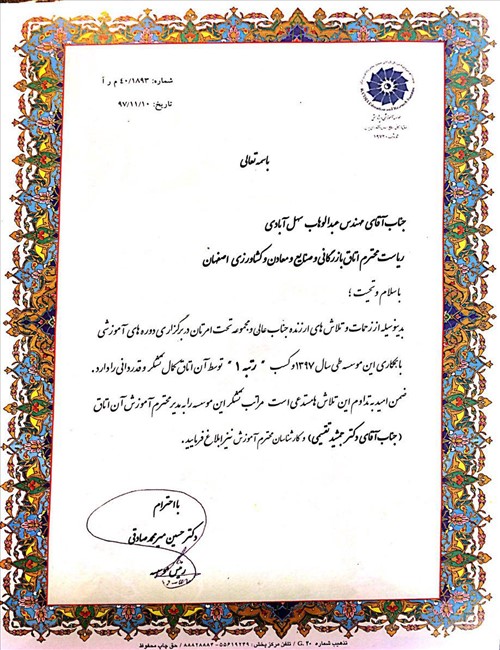 شماره: ۴۰/۱۸۹۳ م ر آ
تاریخ: ۹۷/۱۱/۱۰
باسمه تعالی
جناب آقای مهندس عبدالوهاب سهل آبادی
ریاست محترم اتاق بازرگانی و صنایع و معادن و کشاورزی اصفهان
با سلام و تحیت ؛
بدینوسیله از زحمات و تلاش های ارزنده جناب عالی و مجموعه تحت امرتان در برگزاری دوره های آموزشی
با همکاری این موسسه طی سال ۱۳۹۷ و کسب "رتبه ۱" توسط آن اتاق کمال تشکر و قدردانی را دارد.
ضمن امید به تداوم این تلاش ها مستدعی است مراتب تشکر این موسسه را به مدیر محترم آموزش آن اتاق
(جناب آقای دکتر جمشید نفیسی) و کارشناسان محترم آموزش نیز ابلاغ فرمایید.
با احترام
دکتر حسین میرمحمد صادقی
تذهیب شماره G. ۲۰ / تلفن مرکز پخش: ۵۵۶۱۹۲۳۹-۸۸۸۲۸۸۸۲ / حق چاپ محفوظ